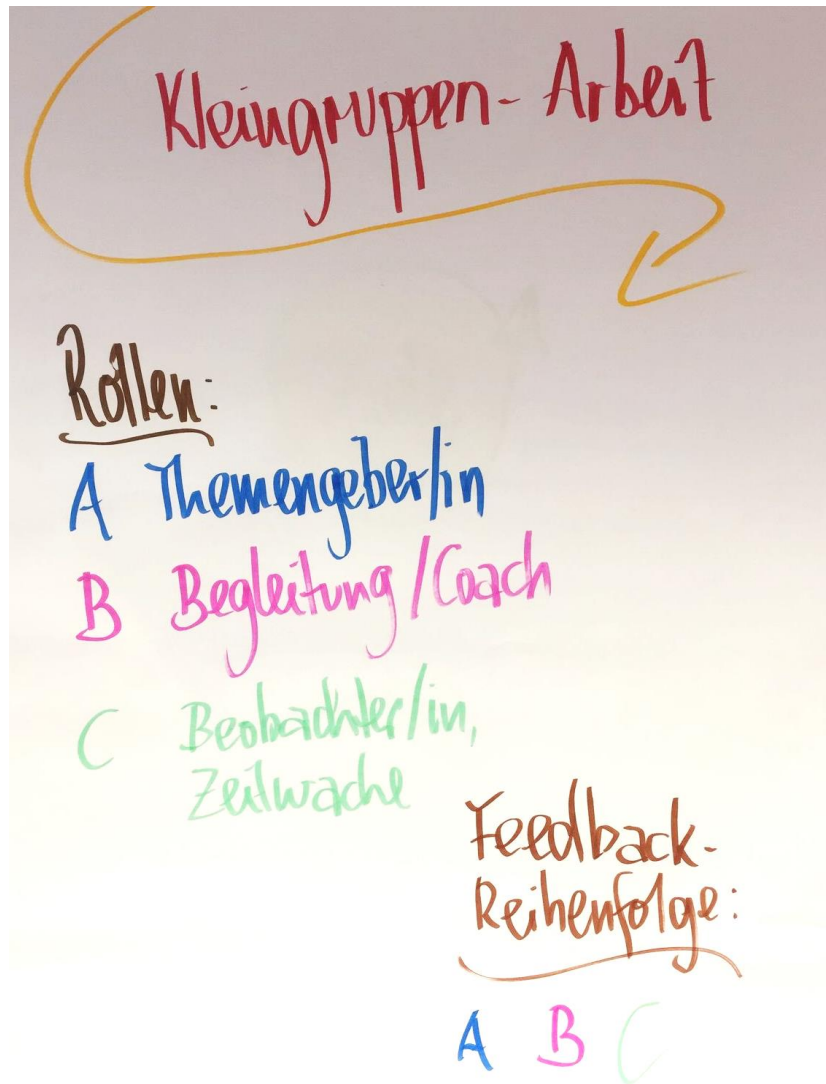 Kleingruppen-Arbeit
Rollen:
A Themengeber/in
B Begleitung/Coach
C Beobachter/in,
Zeitwache
Feedback-
Reihenfolge:
A B C